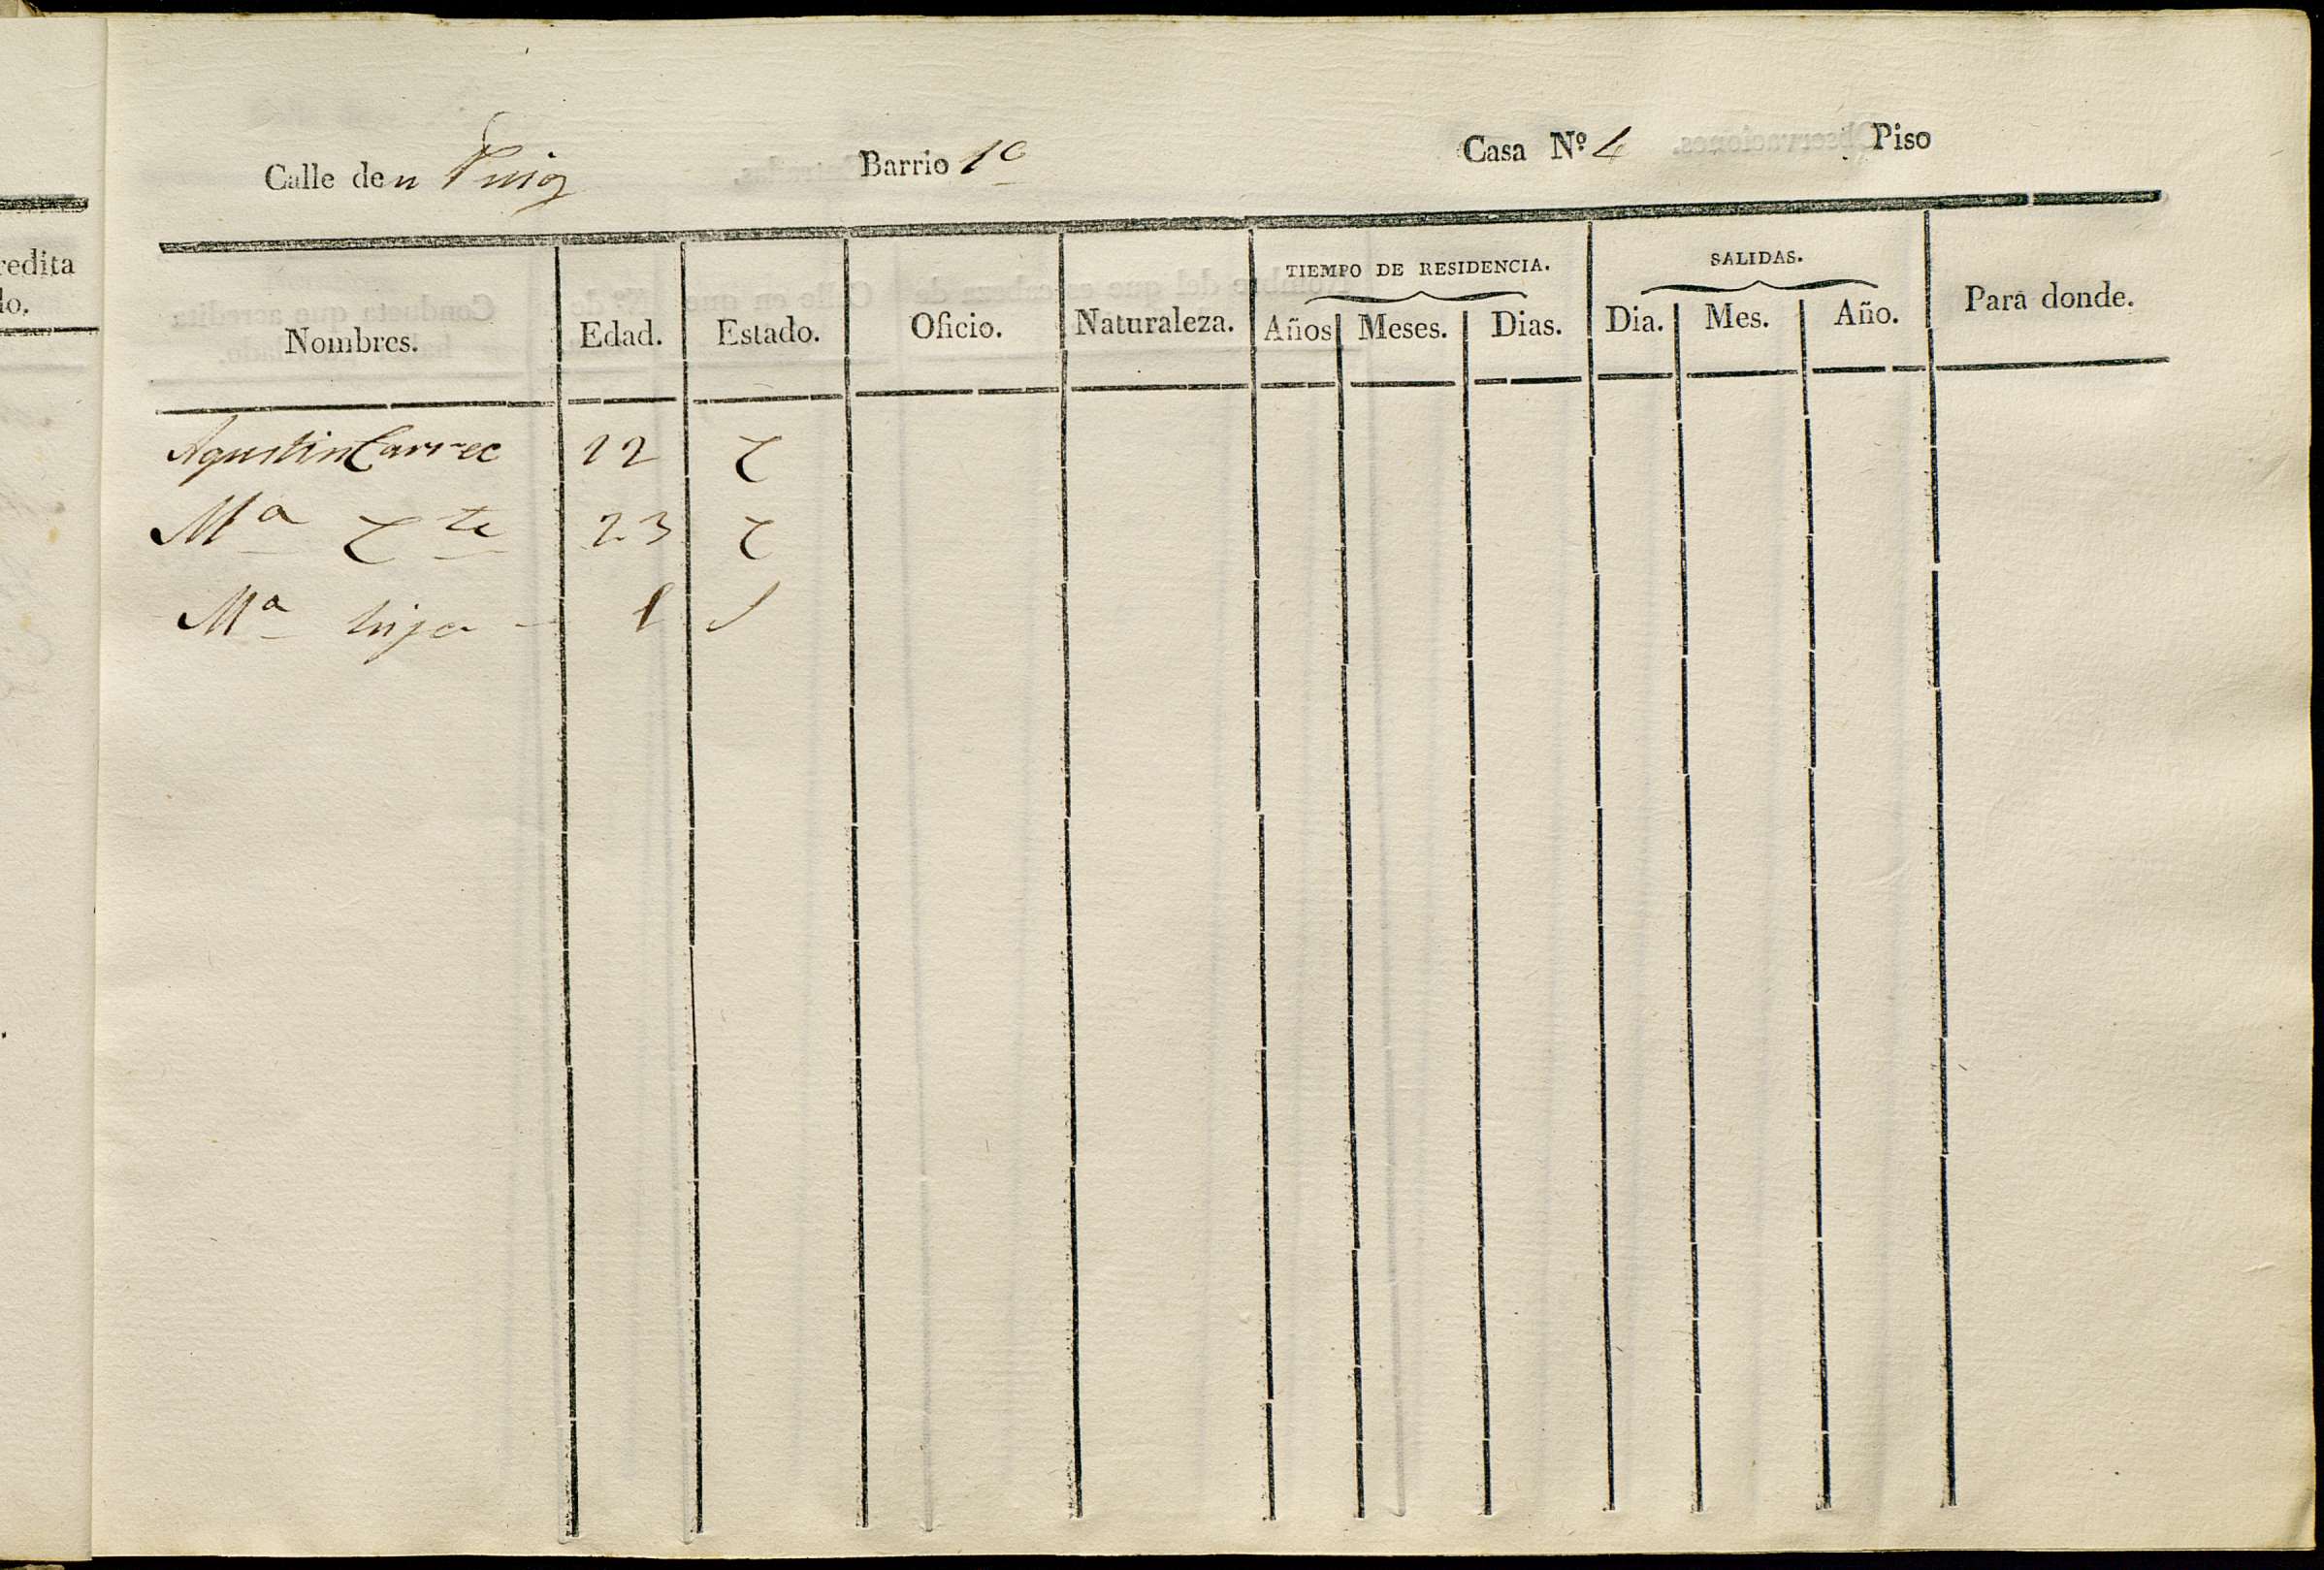 Calle den Puig Barrio 1º Casa Nº 4 Piso
redita
do.
TIEMPO DE RESIDENCIA. SALIDAS.
Nombres. Edad. Estado. Oficio. Naturaleza. Años Meses. Dias. Dia. Mes. Año. Para donde.
Agustin Carrec 22 C
Mª C te 23 C
Mª hija 1 S